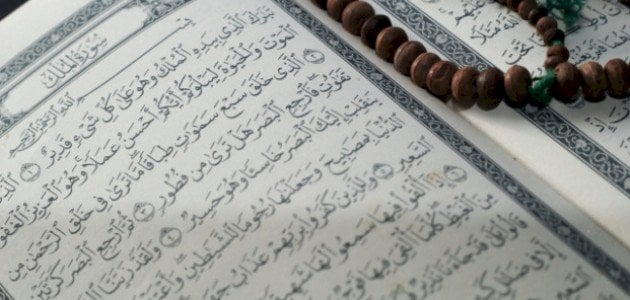 سُورَةُ المُلْكِ
بِسْمِ ٱللَّهِ ٱلرَّحْمَٰنِ ٱلرَّحِيمِ
تَبَٰرَكَ ٱلَّذِى بِيَدِهِ ٱلْمُلْكُ وَهُوَ عَلَىٰ كُلِّ شَىْءٍ قَدِيرٌ ١
ٱلْمَوْتَ وَٱلْحَيَوٰةَ لِيَبْلُوَكُمْ أَيُّكُمْ أَحْسَنُ عَمَلًا وَهُوَ ٱلْعَزِيزُ
ٱلَّذِى خَلَقَ سَبْعَ سَمَٰوَٰتٍ طِبَاقًا مَّا تَرَىٰ فِى خَلْقِ ٱلرَّحْمَٰنِ مِن
تَفَٰوُتٍ فَٱرْجِعِ ٱلْبَصَرَ هَلْ تَرَىٰ مِن فُطُورٍ ٣ ثُمَّ ٱرْجِعِ ٱلْبَصَرَ كَرَّتَيْنِ
يَنقَلِبْ إِلَيْكَ ٱلْبَصَرُ خَاسِئًا وَهُوَ حَسِيرٌ ٤ وَلَقَدْ زَيَّنَّا
ٱلدُّنْيَا بِمَصَٰبِيحَ وَجَعَلْنَٰهَا رُجُومًا لِّلشَّيَٰطِينِ
ٱلسَّعِيرِ ٥ وَلِلَّذِينَ كَفَرُوا۟ بِرَبِّهِمْ عَذَابُ
إِذَآ أُلْقُوا۟ فِيهَا سَمِعُوا۟ لَهَا شَهِيقًا
مِنَ ٱلْغَيْظِ كُلَّمَآ أُلْقِىَ فِيهَا
قَالُوا۟ بَلَىٰ قَدْ جَآءَنَا نَذِيرٌ
إِلَّا فِى ضَلَٰلٍ